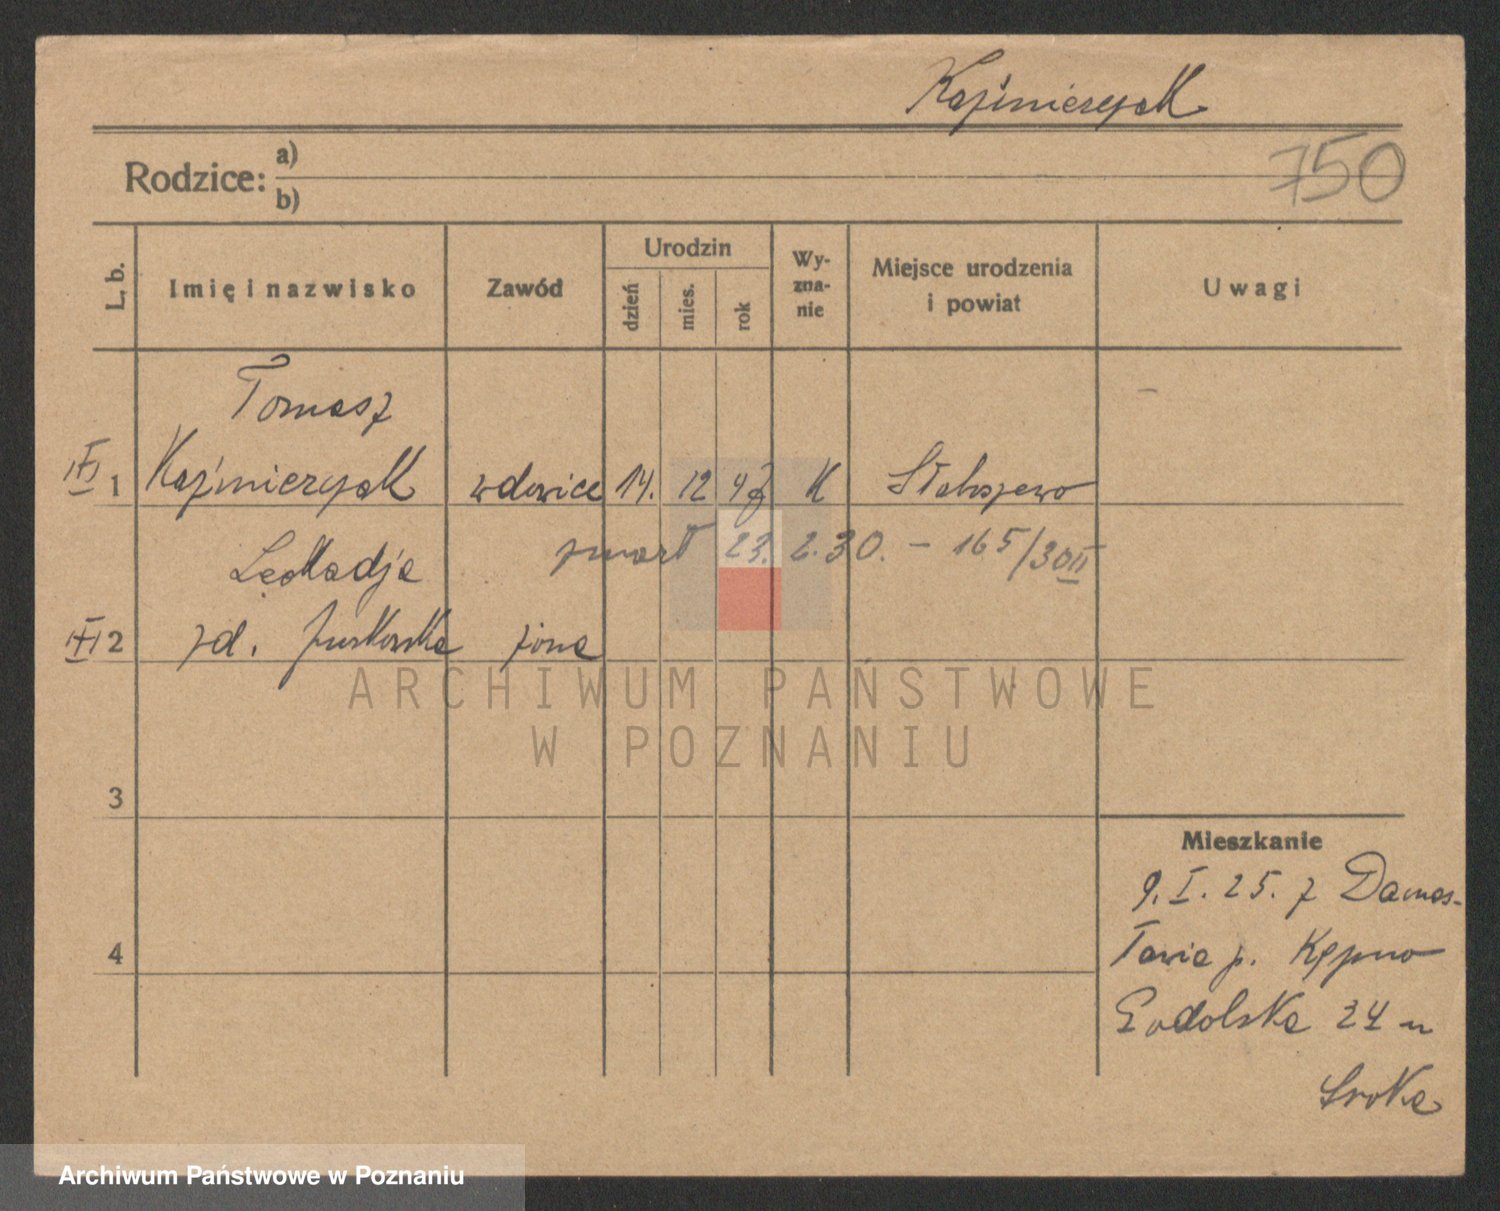 Kaźmierczak
750
Rodzice: a)
b)
L. b.
Imię i nazwisko
Zawód
Urodzin
dzień
mies.
rok
Wy-
zna-
nie
Miejsce urodzenia
i powiat
Uwagi
Tomasz
1 Kaźmierczak wdowiec 14. 12 47 K
zmarł 23. 2. 30. - 165/30 II
2 zd. żona
3
4
Mieszkanie
9. I. 25. z Domas-
ławia p. Kępno
Podolska 24 u
Sroka
ARCHIWUM PAŃSTWOWE
W POZNANIU
Archiwum Państwowe w Poznaniu